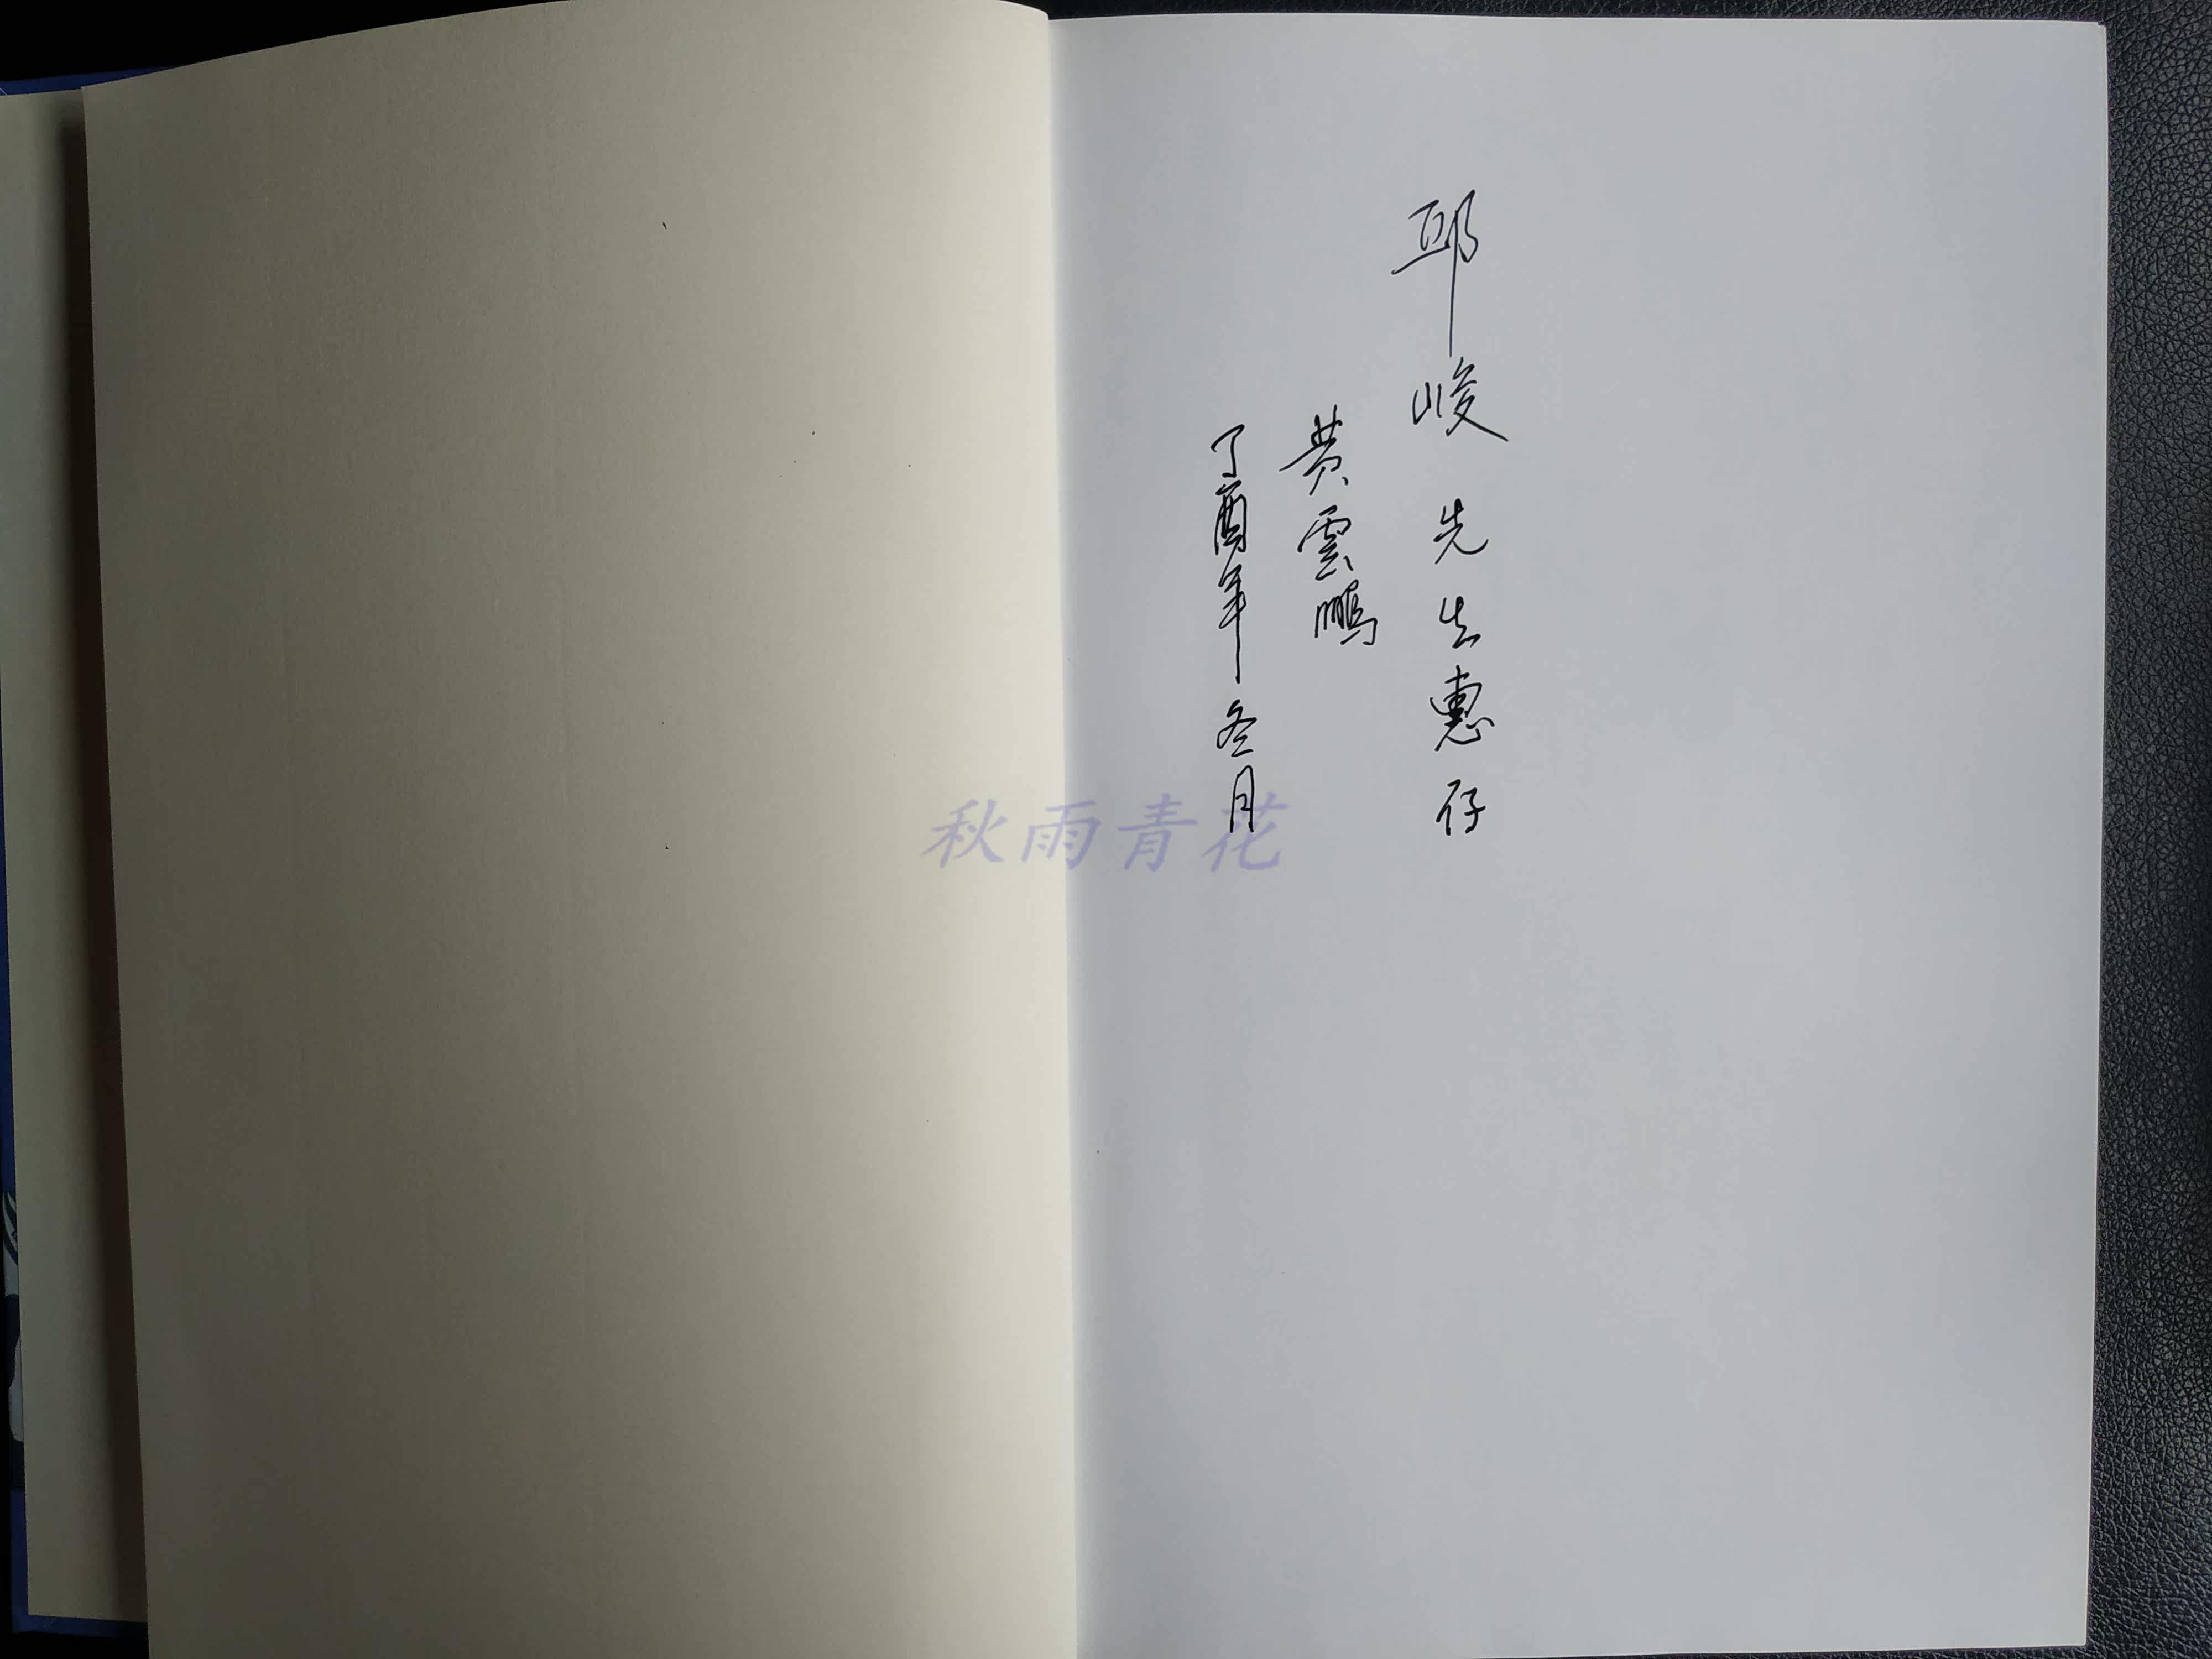 邱峻先生惠存
黄雲鵬
丁酉年冬月
秋雨青花